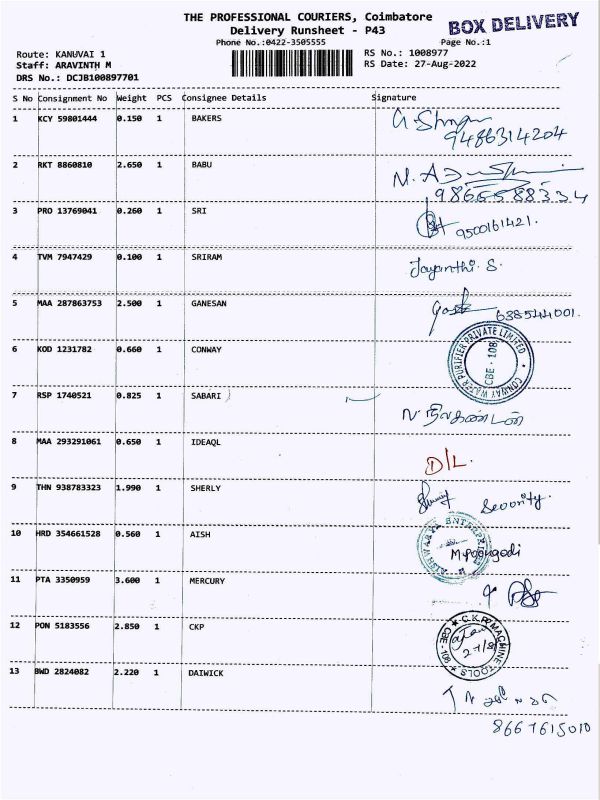 THE PROFESSIONAL COURIERS, Coimbatore
Delivery Runsheet - P43
BOX DELIVERY
Phone No.:0422-3505555
Page No.:1
Route: KANUVAI 1
RS No.: 1008977
Staff: ARAVINTH M
RS Date: 27-Aug-2022
DRS No.: DCJB100897701
S No Consignment No Weight PCS Consignee Details Signature
1 KCY 59801444 0.150 1 BAKERS
9486314204
2 RKT 8860810 2.650 1 BABU
9866588334
3 PRO 13769041 0.260 1 SRI
9500161421.
4 TVM 7947429 0.100 1 SRIRAM Jayanthi. S.
5 MAA 287863753 2.500 1 GANESAN
638544001.
6 KOD 1231782 0.660 1 CONWAY
CONWAY WATER PURIFIER PRIVATE LIMITED
CBE - 108
7 RSP 1740521 0.825 1 SABARI
நீலகண்டன்
8 MAA 293291061 0.650 1 IDEAQL
D/L.
9 THN 938783323 1.990 1 SHERLY
10 HRD 354661528 0.560 1 AISH
AISHWARYA ENTERPRISES
M.Poongodi
11 PTA 3350959 3.600 1 MERCURY
12 PON 5183556 2.850 1 CKP
C.K.P. MACHINE TOOLS
CBE - 108
13 BWD 2824082 2.220 1 DAIWICK
8667615010